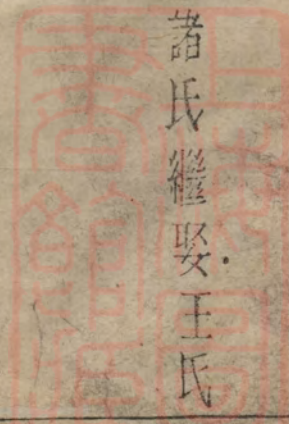 諸氏繼娶王氏